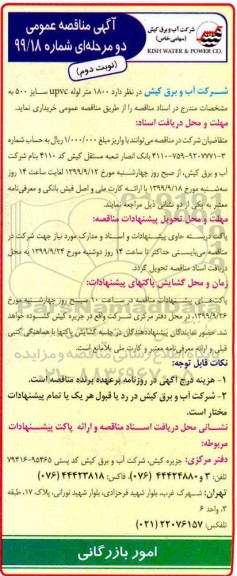 شرکت آب و برق کیش
(سهامی خاص)
KISH WATER & POWER CO.
آگهی مناقصه عمومی
دو مرحله‌ای شماره ۹۹/۱۸
(نوبت دوم)
شرکت آب و برق کیش در نظر دارد ۱۸۰۰ متر لوله upvc سایز ۵۰۰ به
مشخصات مندرج در اسناد مناقصه را از طریق مناقصه عمومی خریداری نماید.
مهلت و محل دریافت اسناد:
متقاضیان شرکت در مناقصه می‌توانند با واریز مبلغ ۱/۰۰۰/۰۰۰ ریال به حساب شماره
۴۱۱۰-۷۵۹-۹۲۰۷۷۷۱-۳ بانک انصار شعبه مستقل کیش کد ۴۱۱۰ بنام شرکت
آب و برق کیش، از صبح روز چهارشنبه مورخ ۱۳۹۹/۹/۱۲ لغایت ساعت ۱۴ روز
سه‌شنبه مورخ ۱۳۹۹/۹/۱۸ با ارائه کارت ملی و اصل فیش بانکی و معرفی‌نامه
معتبر به یکی از دو نشانی ذیل مراجعه نمایند.
مهلت و محل تحویل پیشنهادات مناقصه:
پاکت دربسته حاوی پیشنهادات و اسناد و مدارک مورد نیاز جهت شرکت در
مناقصه می‌بایستی حداکثر تا ساعت ۱۴ روز دوشنبه مورخ ۱۳۹۹/۹/۲۴ به محل
دریافت اسناد مناقصه تحویل گردد.
زمان و محل گشایش پاکتهای پیشنهادات:
پاکت‌های پیشنهادات مناقصه در ساعت ۱۰ صبح روز چهارشنبه مورخ
۱۳۹۹/۹/۲۶، در محل دفتر مرکزی شرکت واقع در جزیره کیش گشوده خواهد
شد. حضور نمایندگان پیشنهاددهندگان در جلسه گشایش پاکتها با هماهنگی کتبی
قبلی و ارائه معرفی‌نامه معتبر و کارت ملی بلامانع است.
نکات قابل توجه:
۱- هزینه درج آگهی در روزنامه برعهده برنده مناقصه است.
۲- شرکت آب و برق کیش در رد یا قبول هر یک یا تمام پیشنهادات
مختار است.
نشانی محل دریافت اسناد مناقصه و ارائه پاکت پیشنهادات
مربوطه:
دفتر مرکزی: جزیره کیش، شرکت آب و برق کیش کد پستی ۹۵۴۶۵-۷۹۴۱۶
تلفن: ۳ و ۴۴۴۲۴۸۸۰ (۰۷۶)، فاکس: ۴۴۴۲۳۸۱۸ (۰۷۶)
تهران: شهرک غرب، بلوار شهید فرحزادی، بلوار شهید نورانی، پلاک ۱۷، طبقه
۳، واحد ۶
تلفکس: ۲۲۰۷۶۱۵۷ (۰۲۱)
امور بازرگانی